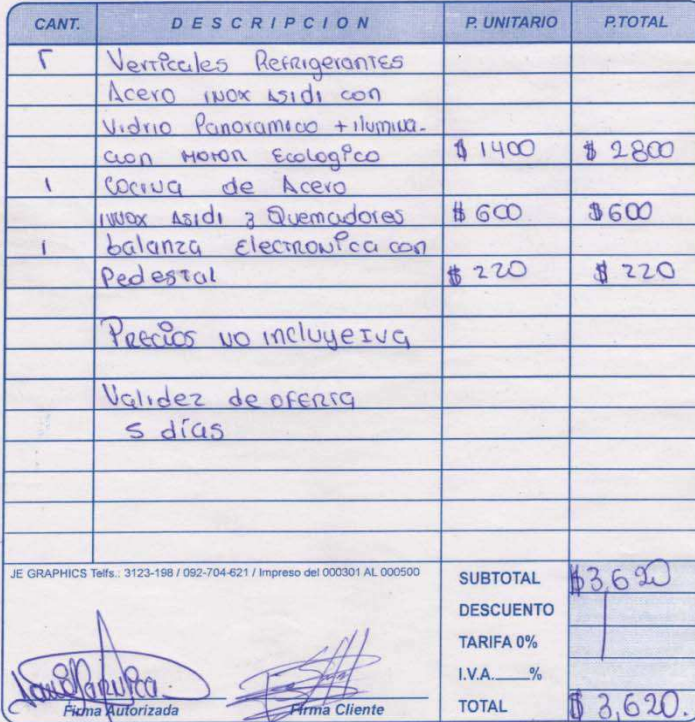 CANT. DESCRIPCION P. UNITARIO P.TOTAL
Verticales Refrigerantes
Acero inox asidi con
Vidrio Panoramico + ilumina-
cion Motor Ecologico $ 1400 $ 2800
1 Cocina de Acero
inox asidi 3 Quemadores $ 600 $ 600
1 balanza electronica con
Pedestal $ 220 $ 220
Precios no incluye Iva
Validez de oferta
5 días
JE GRAPHICS Telfs.: 3123-198 / 092-704-621 / Impreso del 000301 AL 000500
SUBTOTAL $3,620
DESCUENTO
TARIFA 0%
I.V.A.____%
TOTAL $ 3,620.
Firma Autorizada Firma Cliente